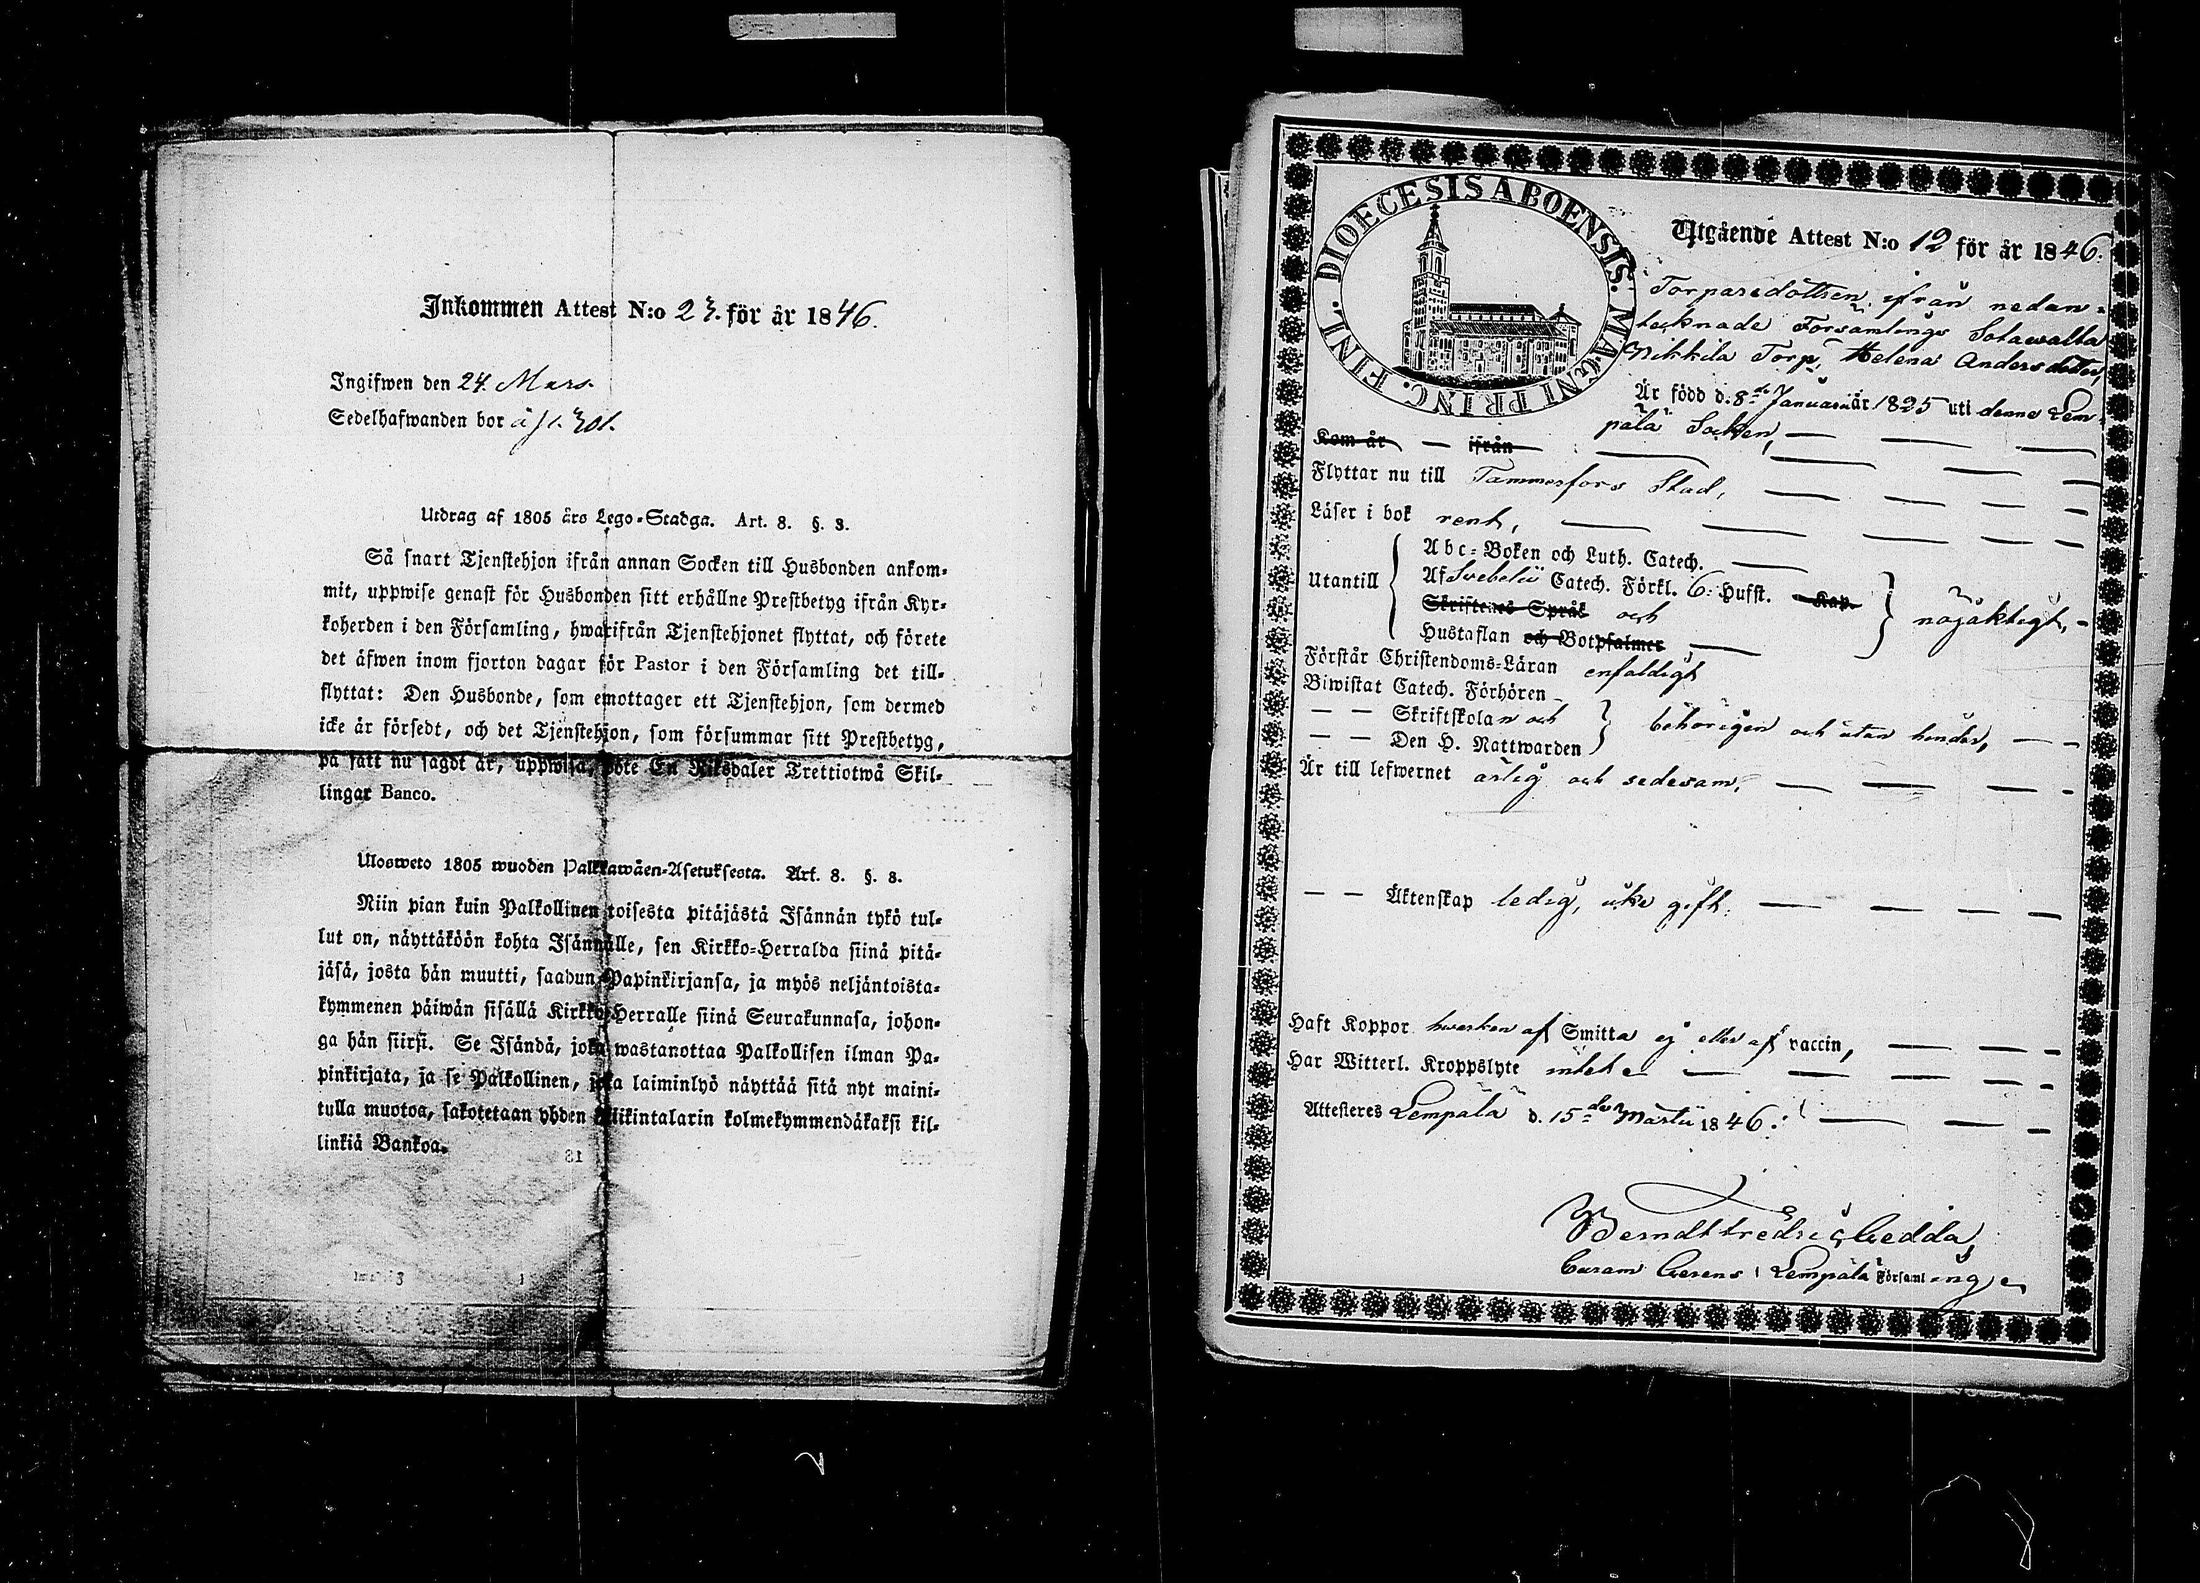 Inkommen Attest N:o 23. för år 1846.
Ingifwen den 24. Mars.
Sedelhafwanden bor å fl. 301.
Utdrag af 1805 års Lego-Stadga. Art. 8. §. 8.
Så snart Tjenstehjon ifrån annan Socken till Husbonden ankom-
mit, uppwise genast för Husbonden sitt erhållne Prestbetyg ifrån Kyr-
koherden i den Församling, hwarifrån Tjenstehjonet flyttat, och förete
det äfwen inom fjorton dagar för Pastor i den Församling det till-
flyttat: Den Husbonde, som emottager ett Tjenstehjon, som dermed
icke är försedt, och det Tjenstehjon, som försummar sitt Prestbetyg,
på sätt nu sagdt är, uppwisa, böte En Riksdaler Trettiotwå Skil-
lingar Banco.
Ulosweto 1805 wuoden Palkkawäen-Asetuksesta. Art. 8. §. 8.
Niin pian kuin Palkollinen toisesta pitäjästä Isännän tykö tul-
lut on, näyttäköön kohta Isännälle, sen Kirkko-Herralda siinä pitä-
jäsä, josta hän muutti, saadun Papinkirjansa, ja myös neljäntoista-
kymmenen päiwän sisällä Kirkko-Herralle siinä Seurakunnasa, johon-
ga hän siirsi. Se Isändä, joka wastanottaa Palkollisen ilman Pa-
pinkirjata, ja se Palkollinen, joka laiminlyö näyttää sitä nyt maini-
tulla muotoa, sakotetaan yhden Rikintalarin kolmekymmendäkaksi kil-
linkiä Bankoa.
DIOECESIS ABOENSIS. MAGNI PRINC. FINL.
Utgående Attest N:o 12 för år 1846.
Torparedottren ifrån nedan-
tecknade Församlings Sotawalta
Nikkila Torp, Helena Andersdotter,
Är född d. 8de Januarii år 1825 uti denne Lem-
päla Socken,
Kom år — ifrån
Flyttar nu till Tammerfors Stad,
Läser i bok rent,
Utantill
Abc-Boken och Luth. Catech.
Af Svebelii Catech. Förkl. 6. Hufst. Kap.
Skriftenes Språk och
Hustaflan och Botpsalmer
nöjaktigt,
Förstår Christendoms-Läran enfaldigt
Biwistat Catech. Förhören
— — Skriftskolan och
— — Den H. Nattwarden
behörigen och utan hinder,
Är till lefwernet ärlig och sedesam,
— — Äktenskap ledig, icke gift.
Haft Koppor hwarken af Smitta ej eller af vaccin,
Har Witterl. Kroppslyte intet
Attesteres Lempäla d. 15de Martii 1846.
Berndt Fredric Gedda,
Curam Gerens i Lempäla Församling